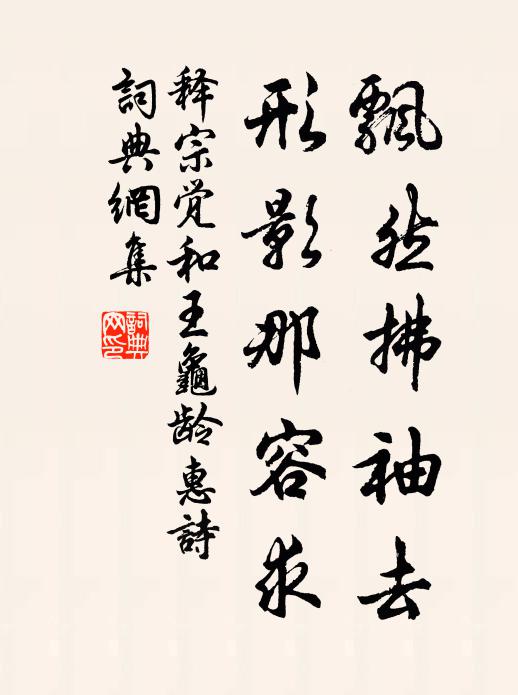 飄然拂袖去
形影那容求
释宗觉和王龜龄惠詩
詞典網集
詞典
网印